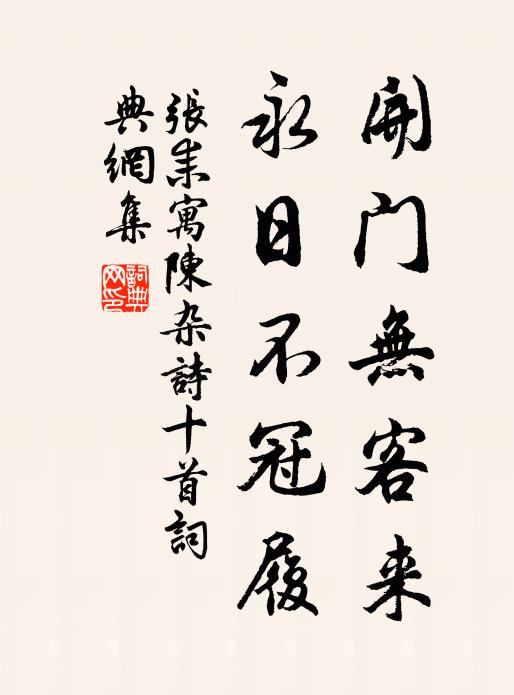 開门無客来
永日不冠履
張耒寓陳杂詩十首詞
典網集
詞典网印